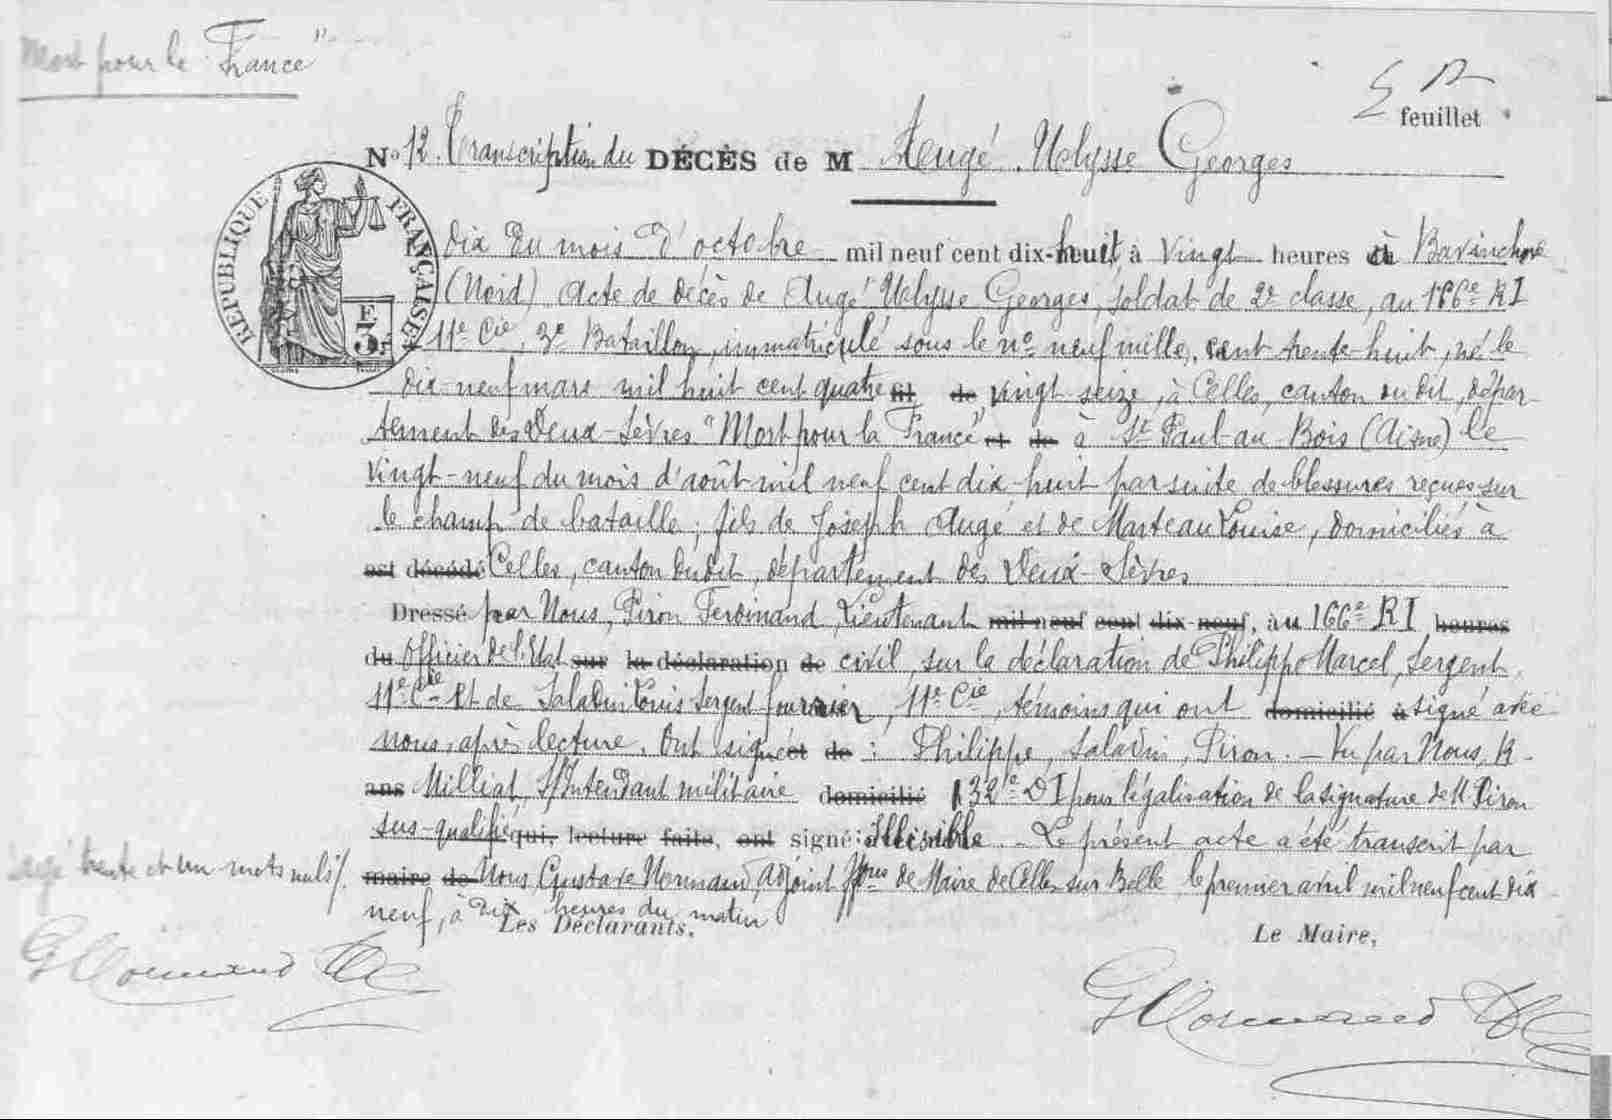 Mort pour la "France"
feuillet
No 12. Transcription du DÉCÈS de M Augé Ulysse Georges
RÉPUBLIQUE FRANÇAISE
E
3F
dix du mois d'octobre mil neuf cent dix-huit, à vingt heures à Bavinchove
(Nord) Acte de décès de Augé Ulysse Georges, soldat de 2e classe, au 166e RI
11e Cie, 3e Bataillon, immatriculé sous le no neuf mille, cent trente-huit, né le
dix-neuf mars mil huit cent quatre fil de vingt seize, à Celles, canton du dit, dépar-
tement des Deux-Sèvres "Mort pour la France" et de à St Paul-au-Bois (Aisne) le
vingt-neuf du mois d'août mil neuf cent dix-huit par suite de blessures reçues sur
le champ de bataille, fils de Joseph Augé et de Marteau Louise, domiciliés à
est décédé Celles, canton du dit, département des Deux-Sèvres
Dressé par Nous, Piron Ferdinand, Lieutenant mil neuf cent dix neuf, au 166e RI heures
du Officier de l'Etat sur la déclaration de civil, sur la déclaration de Philippe Marcel, Sergent,
11e Cie et de Saladin Louis Sergent fourrier, 11e Cie, témoins qui ont domicilié à signé avec
nous, après lecture. Ont signé et de : Philippe, Saladin, Piron. – Vu par Nous, R.
ans Milliat, S/Intendant militaire domicilié 132e DI pour légalisation de la signature de M Piron
sus-qualifié qui, lecture faite, ont signé : illisible – Le présent acte a été transcrit par
maire de Nous Gustave Normand, adjoint ffons de Maire de Celles sur Belle, le premier avril mil neuf cent dix
neuf, à dix heures du matin
trente et un mots nuls /.
Les Déclarants,
Le Maire,
GNormand
GNormand